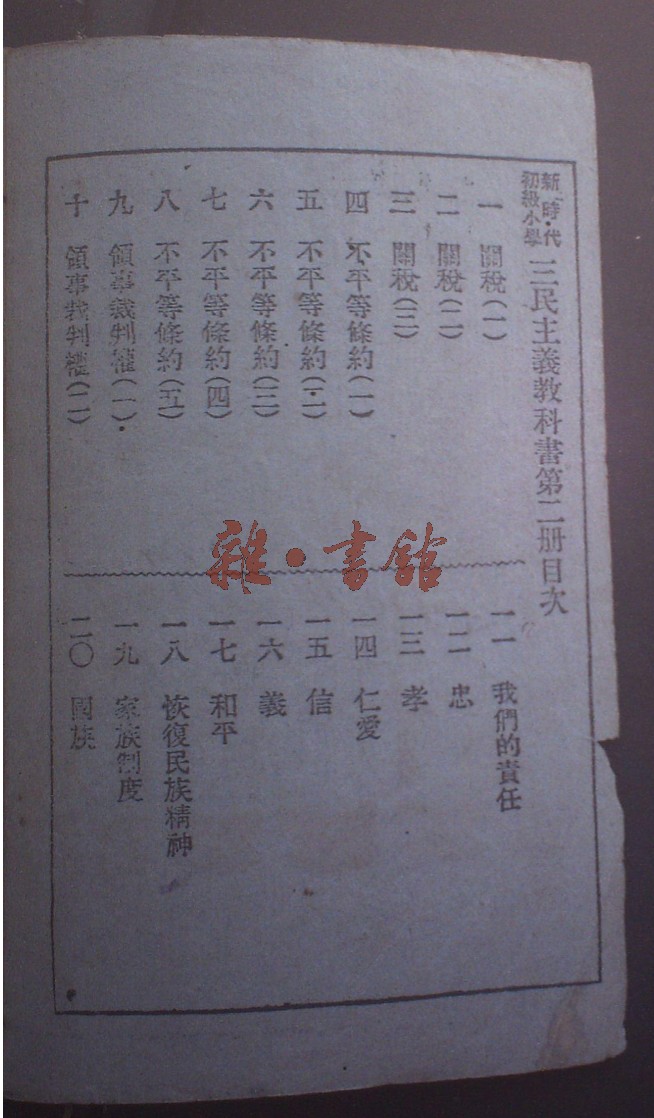 新時代
初級小學
三民主義教科書第二册目次
一 關稅(一)
二 關稅(二)
三 關稅(三)
四 不平等條約(一)
五 不平等條約(二)
六 不平等條約(三)
七 不平等條約(四)
八 不平等條約(五)
九 領事裁判權(一)
十 領事裁判權(二)
一一 我們的責任
一二 忠
一三 孝
一四 仁愛
一五 信
一六 義
一七 和平
一八 恢復民族精神
一九 家族制度
二〇 國族
雜·書館